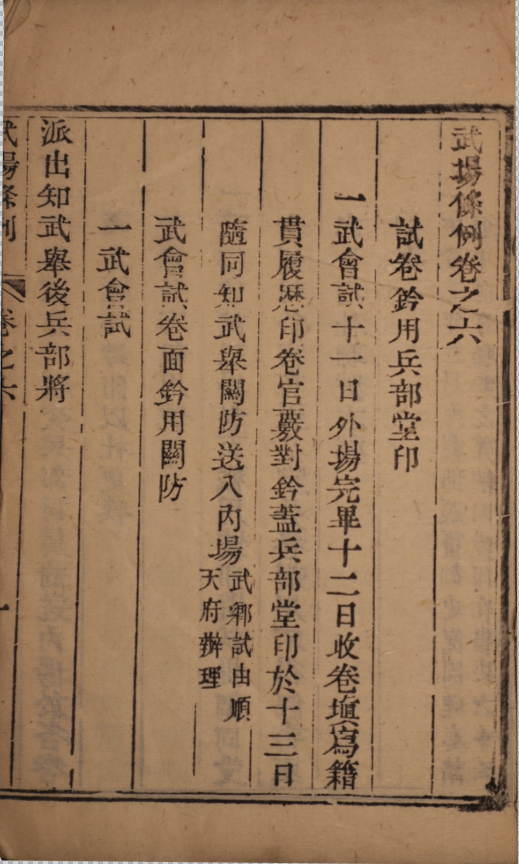 武場條例卷之六
試卷鈐用兵部堂印
一武會試十一日外場完畢十二日收卷塡寫籍
貫履歷印卷官覈對鈐蓋兵部堂印於十三日
隨同知武舉關防送入內場武鄉試由順
天府辦理
武會試卷面鈐用關防
一武會試
派出知武舉後兵部將
武場條例
卷之六
一